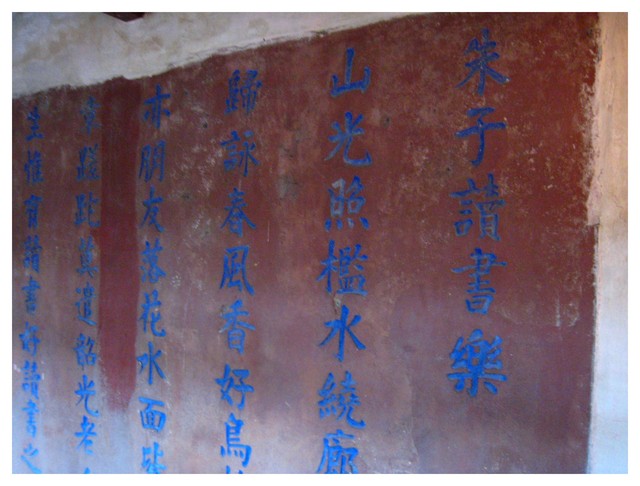 朱子讀書樂
山光照檻水繞廊
歸詠春風香好鳥
亦朋友落花水面皆
章蹉跎莫遣韶光老
生惟有讀書好讀書之